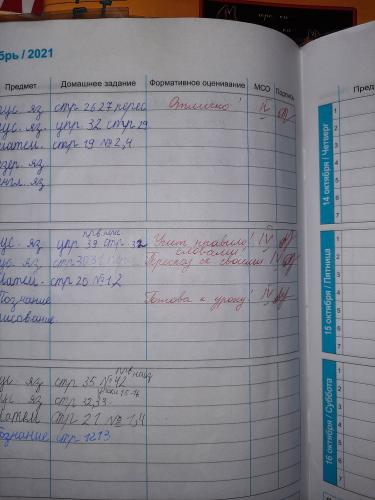 брь / 2021
Предмет Домашнее задание Формативное оценивание МСО Подпись
ус. яз стр 26 27 перес Отлично! IV
ус. яз. упр 32 стр 29
атем. стр 19 № 2,4
зер яз
нгл. яз
ус. яз упр 39 стр 32 Учит правило IV
словами!
ус. яз стр 30 31 Пересказ со своими IV
атем. стр 20 № 1,2
Познание Готова к уроку! IV
исование
ус яз стр 35 № 42
ус яз стр 32,33
атем стр 21 № 1,4
ознание стр 12 13
Пред
14 октября / Четверг
1
2
3
4
5
6
7
15 октября / Пятница
1
2
3
4
5
6
7
16 октября / Суббота
1
2
3
4
5
6
7